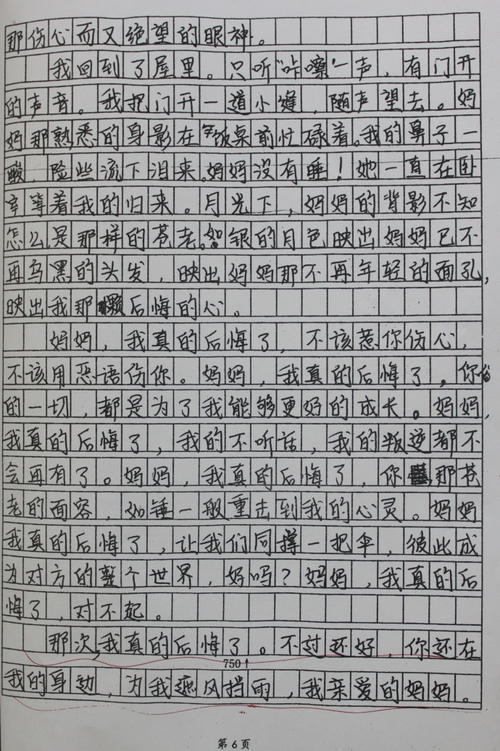 那伤心而又绝望的眼神。
我回到了屋里。只听"咔嚓"一声，有门开
的声音。我把门开一道小缝，随声望去。妈
妈那熟悉的身影在饭桌前忙碌着。我的鼻子一
酸，险些流下泪来。妈妈没有睡！她一直在卧
室等着我的归来。月光下，妈妈的背影不知
怎么是那样的苍老。如银的月色，映出妈妈已不
再乌黑的头发，映出妈妈那不再年轻的面孔，
映出我那颗后悔的心。
妈妈，我真的后悔了，不该惹你伤心，
不该用恶语伤你。妈妈，我真的后悔了，你做
的一切，都是为了我能够更好的成长。妈妈，
我真的后悔了，我的不听话，我的叛逆都不
会再有了。妈妈，我真的后悔了，你那苍
老的面容，如锤一般重击到我的心灵。妈妈
我真的后悔了，让我们同撑一把伞，彼此成
为对方的整个世界，好吗？妈妈，我真的后
悔了，对不起。
那次，我真的后悔了。不过还好，你还在
750↑
我的身边，为我遮风挡雨，我亲爱的妈妈。
第 6 页